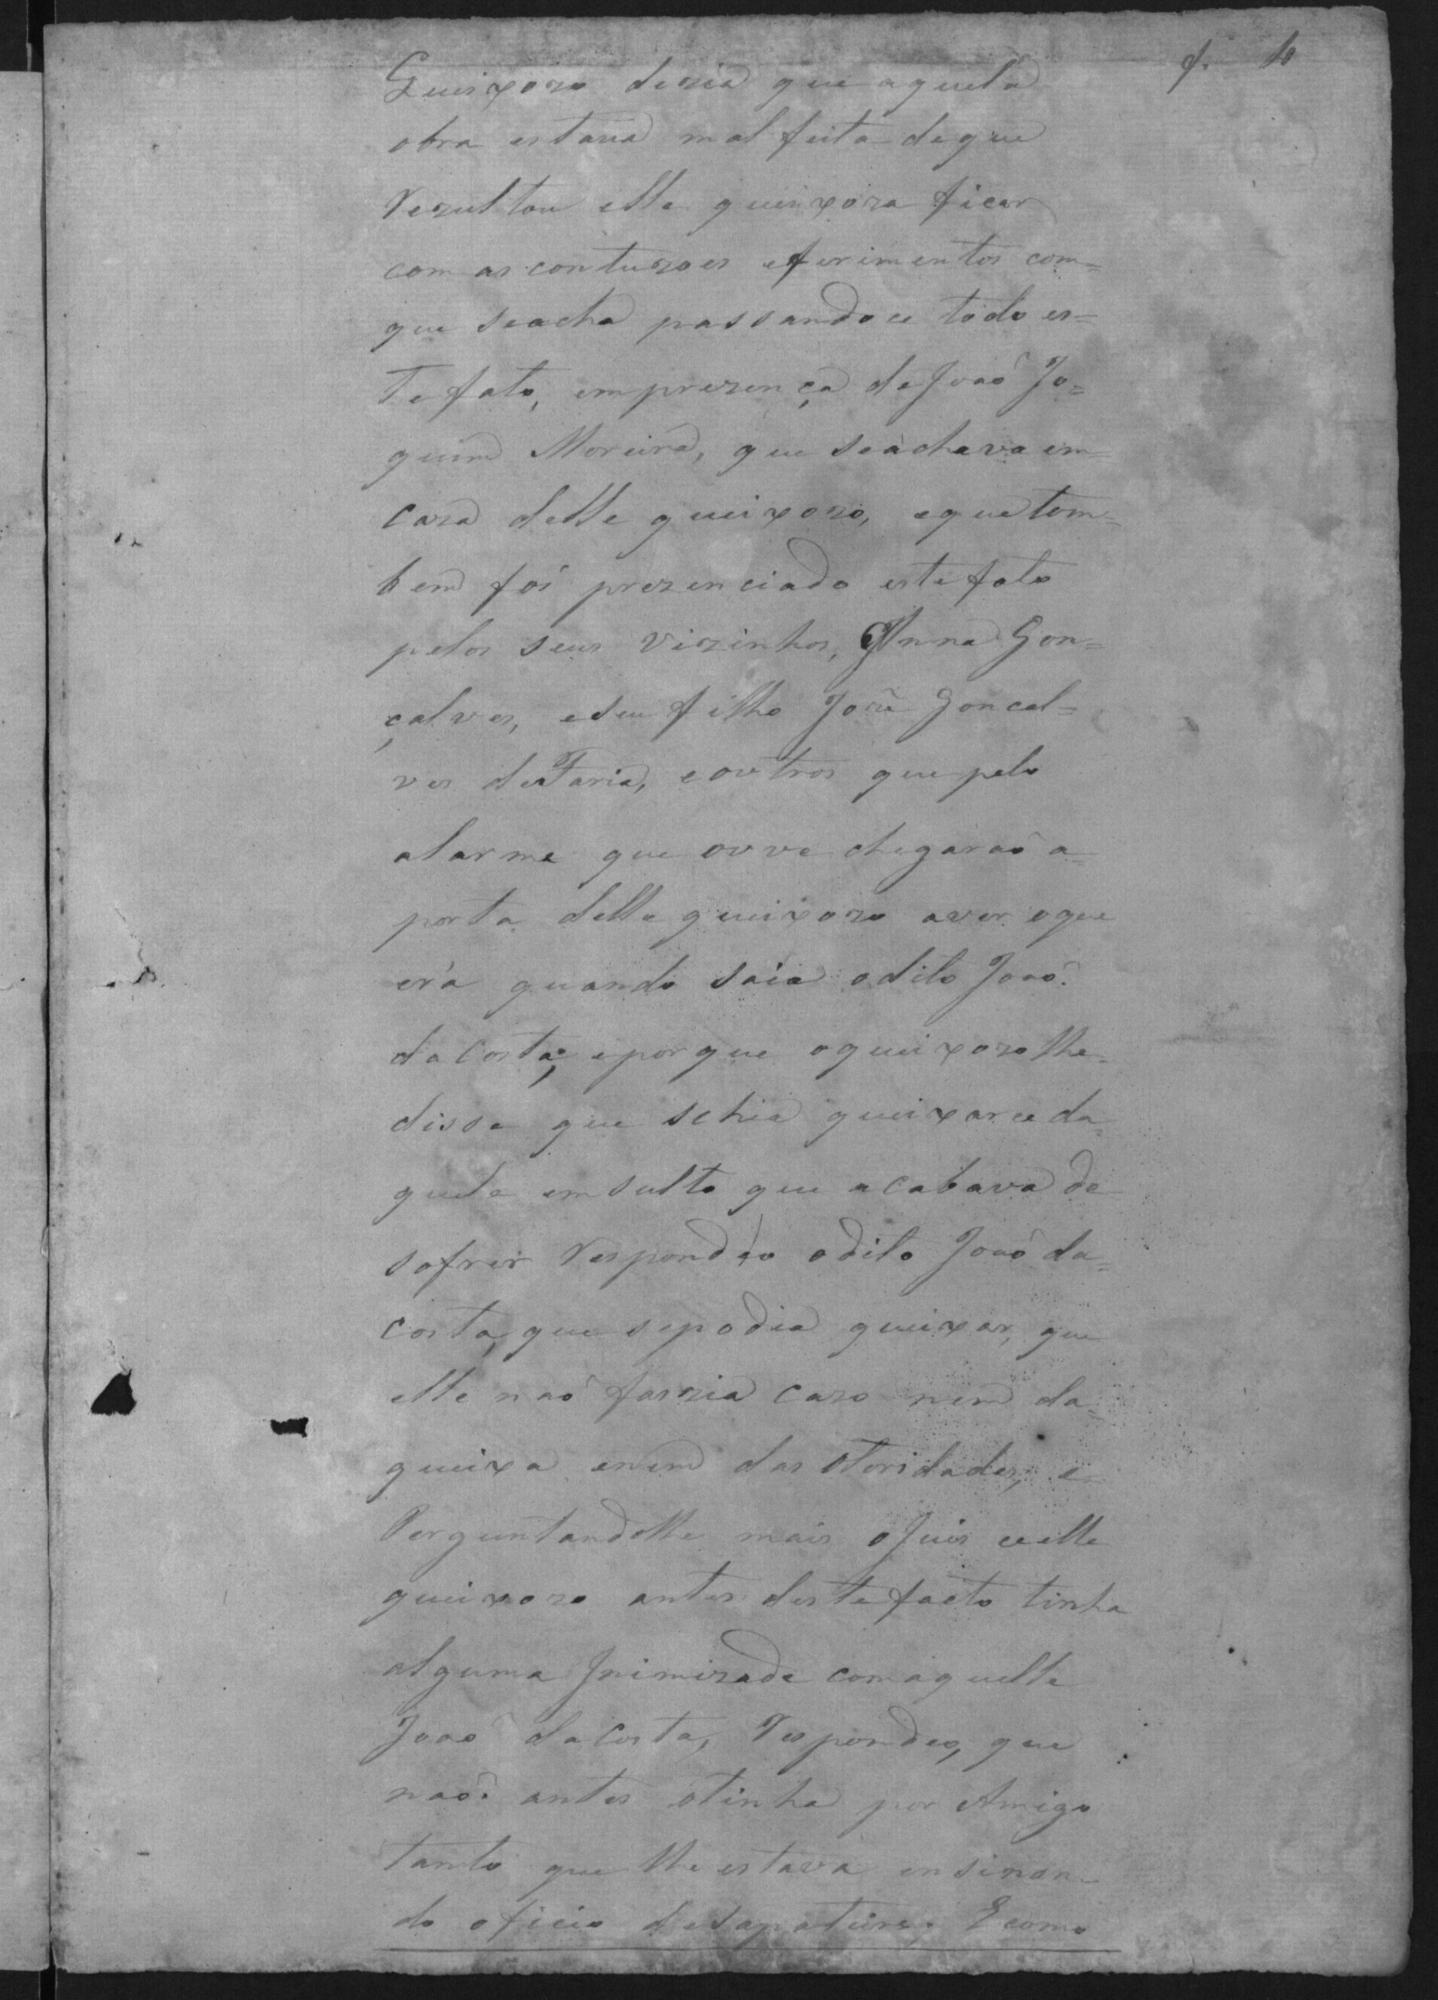 f. 4
Queixozo dezia que aquela
obra estava mal feita deque
Rezultou elle queixozo ficar
com as contuzoes eferimentos com=
que seacha passandoce todo es=
te fato, emprezença deJoaõ Jo=
quim Moreira, que seàchava em=
caza delle queixozo, eque tam=
bem foi prezenciado este fato
pelos seus vizinhos, Anna Gon=
çalves, eseu filho José Goncal=
ves deFaria, eoutros que pelo
alarme que ouve chegaraõ a=
porta delle queixozo aver oque
erà quando saia odito Joaõ
daCosta; eporque oqueixozo lhe=
disse que sehia queixarce da=
quele emsulto que acabava de
sofrer Respondeo odito Joaõ da=
Costa, que sepodia queixar, que
elle naõ fazia cazo nem da=
queixa enem das Otoridades, e
Perguntandolhe mais oJuis ceelle
queixozo antes deste facto tinha
alguma Inimizade comaquelle
Joaõ daCosta, Respondeo, que
naõ: antes otinha por Amigo
tanto que lhe estava ensinan=
do oficio desapateiro; Ecomo